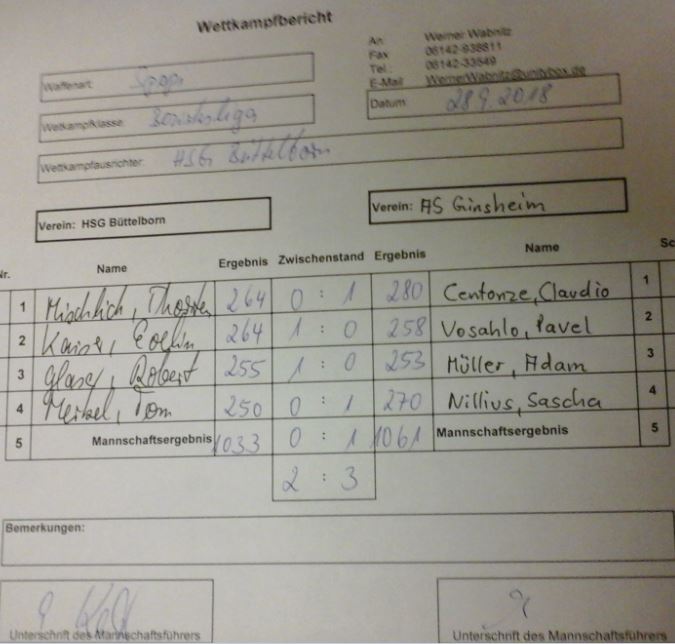 Wettkampfbericht
An: Werner Wabnitz
Fax 06142-938811
Tel.: 06142-33549
E-Mail WernerWabnitz@unitybox.de
Waffenart: Spopi
Datum: 28.9.2018
Wettkampfklasse: Bezirksliga
Wettkampfausrichter: HSG Büttelborn
Verein: HSG Büttelborn Verein: AS Ginsheim
Nr. Name Ergebnis Zwischenstand Ergebnis Name Sc
1 Mischlich, Thorsten 264 0 : 1 280 Centonze, Claudio 1
2 Kaiser, 264 1 : 0 258 Vosahlo, Pavel 2
3 Glaser, Robert 255 1 : 0 253 Müller, Adam 3
4 Merkel, Tom 250 0 : 1 270 Nillius, Sascha 4
5 Mannschaftsergebnis 1033 0 : 1 1061 Mannschaftsergebnis 5
2 : 3
Bemerkungen:
Unterschrift des Mannschaftsführers Unterschrift des Mannschaftsführers